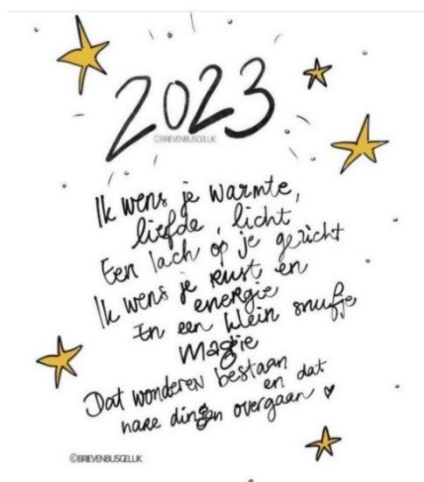 2023
©BRIEVENBUSGELUK
Ik wens je warmte,
liefde, licht
Een lach op je gezicht
Ik wens je Rust en
energie
En een klein snufje
Magie
Dat wonderen bestaan
en dat
nare dingen overgaan ♥
©BRIEVENBUSGELUK